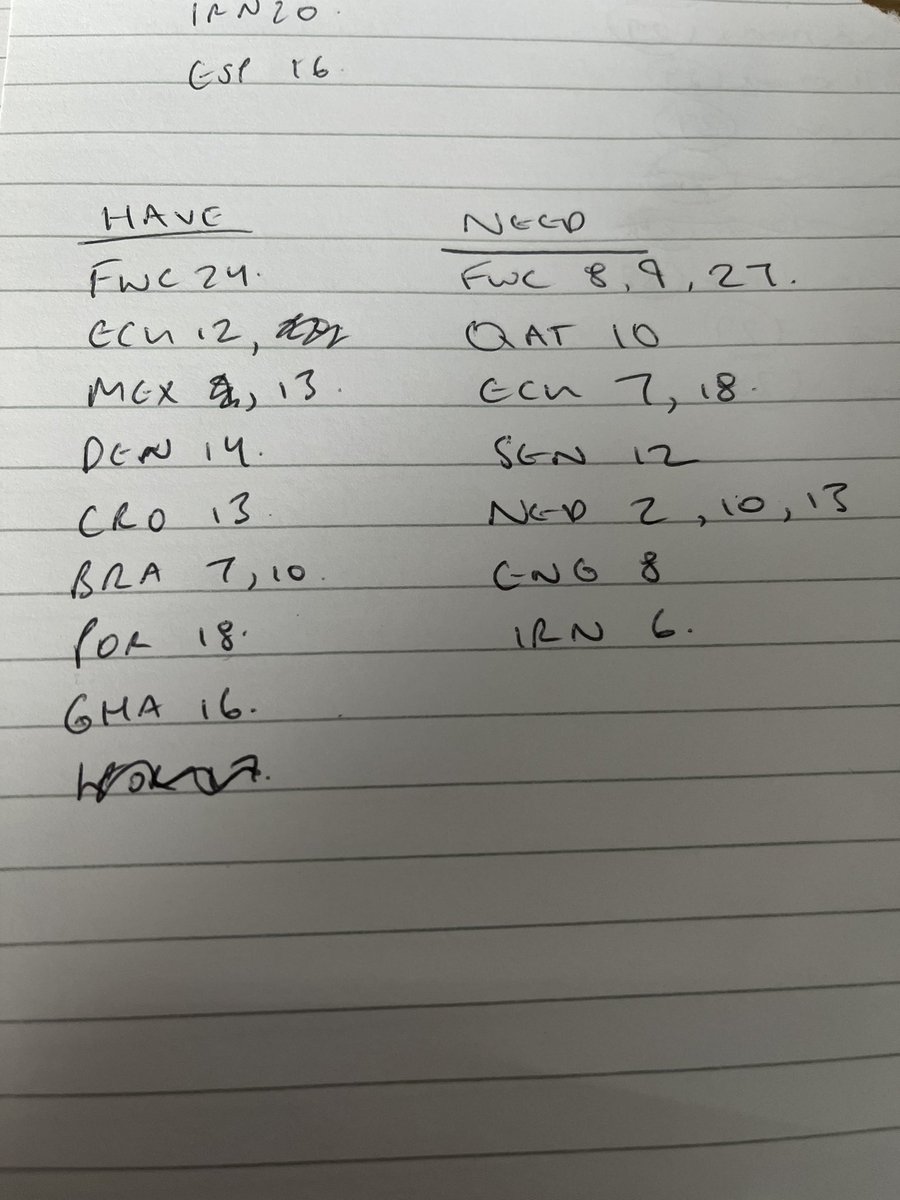 IRN 20.
ESP 16.
HAVE
FWC 24.
ECU 12,
MEX , 13.
DEN 14.
CRO 13.
BRA 7, 10.
POR 18.
GHA 16.
NEED
FWC 8, 9, 27.
QAT 10
ECU 7, 18.
SEN 12
NED 2, 10, 13
ENG 8
IRN 6.